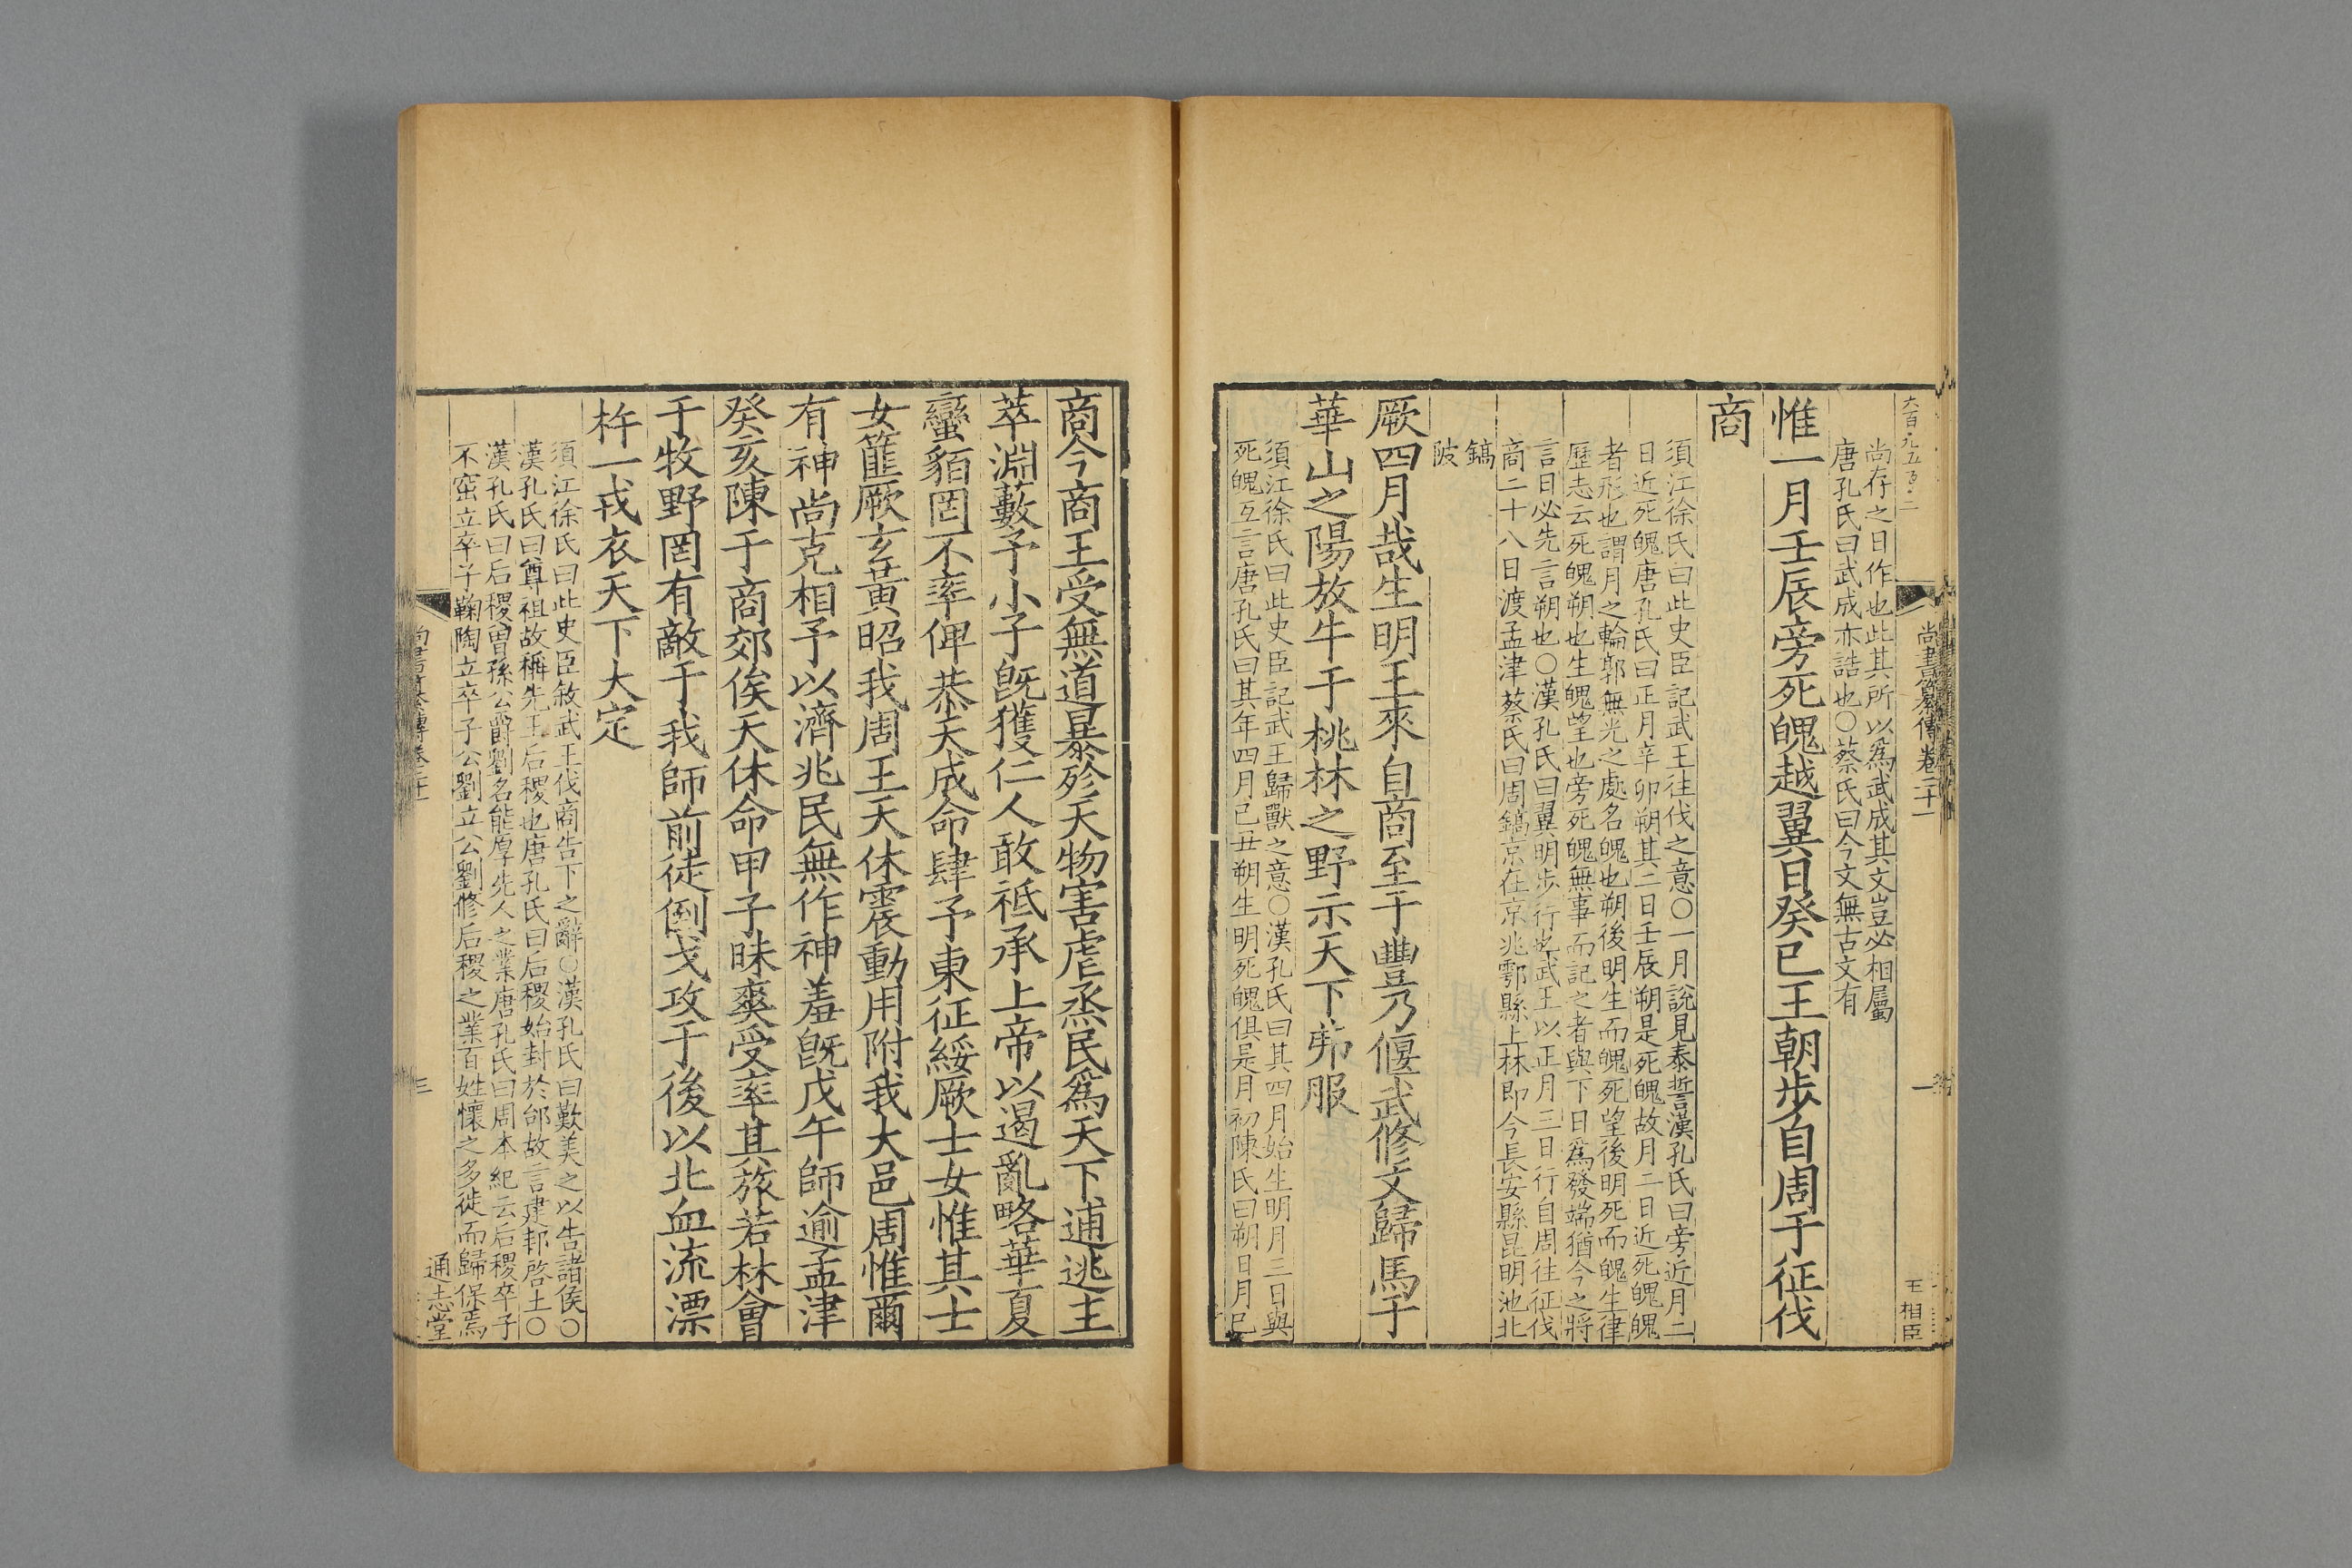 尚存之日作也此其所以爲武成其文豈必相屬
唐孔氏曰武成亦誥也○蔡氏曰今文無古文有
惟一月壬辰旁死魄越翼日癸巳王朝步自周于征伐
商
須江徐氏曰此史臣記武王往伐之意○一月說見泰誓漢孔氏曰旁近月二
日近死魄唐孔氏曰正月辛卯朔其二日壬辰朔是死魄故月二日近死魄魄
者形也謂月之輪郭無光之處名魄也朔後明生而魄死望後明死而魄生律
歷志云死魄朔也生魄望也旁死魄無事而記之者與下日爲發端猶今之將
言日必先言朔也○漢孔氏曰翼明步行也武王以正月三日行自周往征伐
商二十八日渡孟津蔡氏曰周鎬京在京兆鄠縣上林即今長安縣昆明池北
鎬
陂
厥四月哉生明王來自商至于豐乃偃武修文歸馬于
華山之陽放牛于桃林之野示天下弗服
須江徐氏曰此史臣記武王歸獸之意○漢孔氏曰其四月始生明月三日與
死魄互言唐孔氏曰其年四月己丑朔生明死魄俱是月初陳氏曰朔日月巳
尚書纂傳卷二十一
一
王相臣
商今商王受無道暴殄天物害虐烝民爲天下逋逃主
萃淵藪予小子旣獲仁人敢祗承上帝以遏亂略華夏
蠻貊罔不率俾恭天成命肆予東征綏厥士女惟其士
女篚厥玄黃昭我周王天休震動用附我大邑周惟爾
有神尚克相予以濟兆民無作神羞旣戊午師逾孟津
癸亥陳于商郊俟天休命甲子昧爽受率其旅若林會
于牧野罔有敵于我師前徒倒戈攻于後以北血流漂
杵一戎衣天下大定
須江徐氏曰此史臣敘武王伐商告下之辭○漢孔氏曰歎美之以告諸侯○
漢孔氏曰尊祖故稱先王后稷也唐孔氏曰后稷始封於邰故言建邦啓土○
漢孔氏曰后稷曾孫公爵劉名能厚先人之業唐孔氏曰周本紀云后稷卒子
不窋立卒子鞠陶立卒子公劉立公劉修后稷之業百姓懷之多徙而歸保焉
三
通志堂